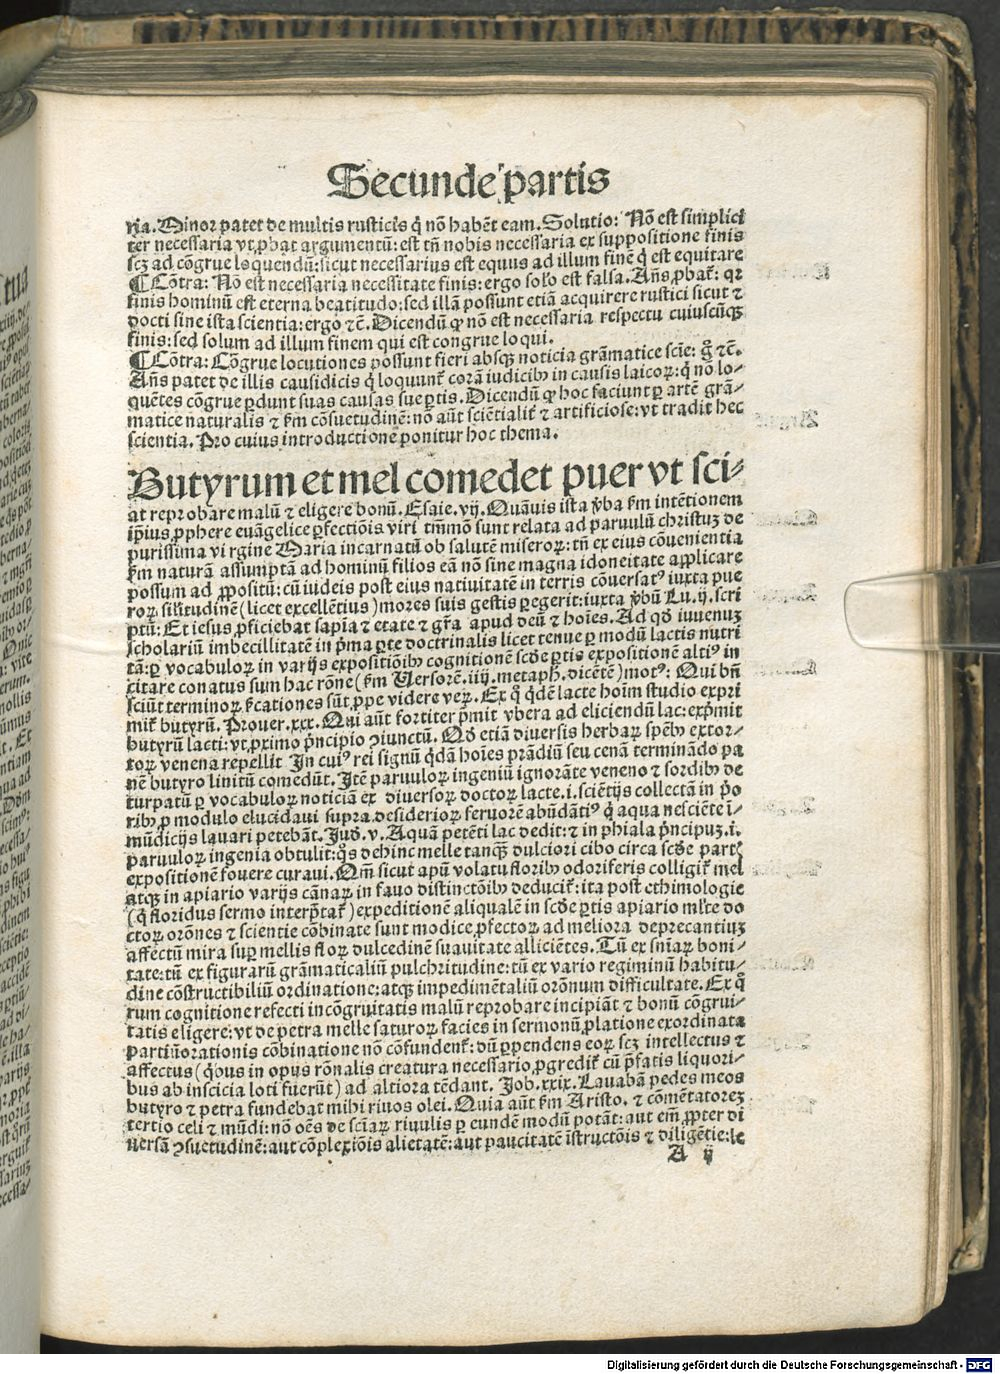 Secunde partis
ria. Minor patet de multis rusticis q̇ nō habēt eam. Solutio: Nō est simplici
ter necessaria vt ꝓbat argumentū: est tñ nobis necessaria ex suppositione finis
scꝫ ad cōgrue loquendū: sicut necessarius est equus ad illum finē q̇ est equitare
¶ Cōtra: Nō est necessaria necessitate finis: ergo solo est falsa. Añs ꝓbat̄: qꝛ
finis hominū est eterna beatitudo: sed illā possunt etiā acquirere rustici sicut ⁊
docti sine ista scientia: ergo ⁊c̄. Dicendū ꝙ nō est necessaria respectu cuiuscūqꝫ
finis: sed solum ad illum finem qui est congrue loqui.
¶ Cōtra: Cōgrue locutiones possunt fieri absqꝫ noticia grāmatice scīe: g̊ ⁊c̄.
Añs patet de illis causidicis q̇ loquunt̄ corā iudicibꝫ in causis laicoꝝ: q̇ nō lo-
quētes cōgrue ꝑdunt suas causas sue ꝑtis. Dicendū ꝙ hoc faciunt ꝑ artē grā-
matice naturalis ⁊ ẜm cōsuetudinē: nō aūt sciētialit̄ ⁊ artificiose: vt tradit hec
scientia. Pro cuius introductione ponitur hoc thema.
Butyrum et mel comedet puer vt sci-
at reprobare malū ⁊ eligere bonū. Esaie. vij. Quāuis ista v̄ba ẜm intētionem
ip̄ius ꝓphere euāgelice ꝑfectiōis viri tm̄mō sunt relata ad paruulū christuꝫ de
purissima virgine Maria incarnatū ob salutē miseroꝝ: tñ ex eius cōuenientia
ẜm naturā assumptā ad hominū filios eā nō sine magna idoneitate applicare
possum ad ꝓpositū: cū iudeis post eius natiuitatē in terris cōuersatꝰ iuxta pue
roꝝ sil̄itudinē (licet excellētius) mores suis gestis ꝑegerit: iuxta v̄bū Lu. ij. scri
ptū: Et iesus ꝓficiebat sapīa ⁊ etate ⁊ gr̄a apud deū ⁊ hoīes. Ad qd̄ iuuenuꝫ
scholariū imbecillitatē in p̄ma ꝑte doctrinalis licet tenue ꝑ modū lactis nutri
tā: ꝑ vocabuloꝝ in varijs expositiōibꝫ cognitionē scd̄e ꝑtis expositionē altiꝰ in
citare conatus sum hac rōne (ẜm Uersorē. iiij. metaph. dicētē) motꝰ: Qui bn̄
sciūt terminoꝝ ẜcationes sūt ꝓpe videre veꝝ. Ex q̊ q̇dē lacte hoīm studio expri
mit̄ butyrū. Prouer. xxx. Qui aūt fortiter p̄mit vbera ad eliciendū lac: exp̄mit
butyrū lacti: vt ꝓximo p̄ncipio ꝯiunctū. Qd̄ etiā diuersis herbaꝝ spēbꝫ extor-
toꝝ venena repellit In cuiꝰ rei signū q̇dā hoīes prādiū seu cenā terminādo pa
nē butyro linitū comedūt. Itē paruuloꝝ ingeniū ignorāte veneno ⁊ sordibꝫ de
turpatū ꝑ vocabuloꝝ noticiā ex diuersoꝝ doctoꝝ lacte. i. sciētijs collectā in p̄o
ribꝫ ꝓ modulo elucidaui supra desidērioꝝ feruorē abūdātiꝰ q̇ aqua nesciētie i-
mūdicijs lauari petebāt. Jud̄. v. Aquā petēti lac dedit: ⁊ in phiala p̄ncipuꝫ. i.
paruuloꝝ ingenia obtulit: q̊s dehinc melle tanqꝫ dulciori cibo circa scd̄e part
expositionē fouere curaui. Qm̄ sicut apū volatu floribꝫ odoriferis colligit̄ mel
atqꝫ in apiario varijs cānaꝝ in fauo distinctōibꝫ deducit̄: ita post ethimologie
(q̇ floridus sermo interp̄tat̄) expeditionē aliqualē in scd̄e ꝑtis apiario ml̄te do
ctoꝝ orōnes ⁊ scientie cōbinate sunt modice ꝓfectoꝝ ad meliora deprecantiuꝫ
affectū mira suꝑ mellis floꝝ dulcedinē suauitate alliciētes. Tū ex sn̄iaꝝ boni-
tate: tū ex figurarū grāmaticaliū pulchritudine: tū ex vario regiminū habitu-
dine cōstructibiliū ordinatione: atqꝫ impedimētaliū orōnum difficultate. Ex q̊
rum cognitione refecti incōgruitatis malū reprobare incipiāt ⁊ bonū cōgrui-
tatis eligere: vt de petra melle saturoꝝ facies in sermonū ꝓlatione exordinata
partiū orationis cōbinatione nō cōfundent̄: dū ꝑpendens eoꝝ scꝫ intellectus ⁊
affectus (q̇bus in opus rōnalis creatura necessario ꝓgredit̄ cū p̄fatis liquori-
bus ab inscicia loti fuerūt) ad altiora tēdant. Job. xxix. Lauabā pedes meos
butyro ⁊ petra fundebat mihi riuos olei. Quia aūt ẜm Aristo. ⁊ cōmētatoreꝫ
tertio celi ⁊ mūdi: nō oēs de sciaꝝ riuulis ꝑ eundē modū potāt: aut em̄ ꝓpter di
uersā ꝯsuetudinē: aut cōplexiōis alietatē: aut paucitatē īstructōis ⁊ diligētie: le
A ij
Digitalisierung gefördert durch die Deutsche Forschungsgemeinschaft - DFG